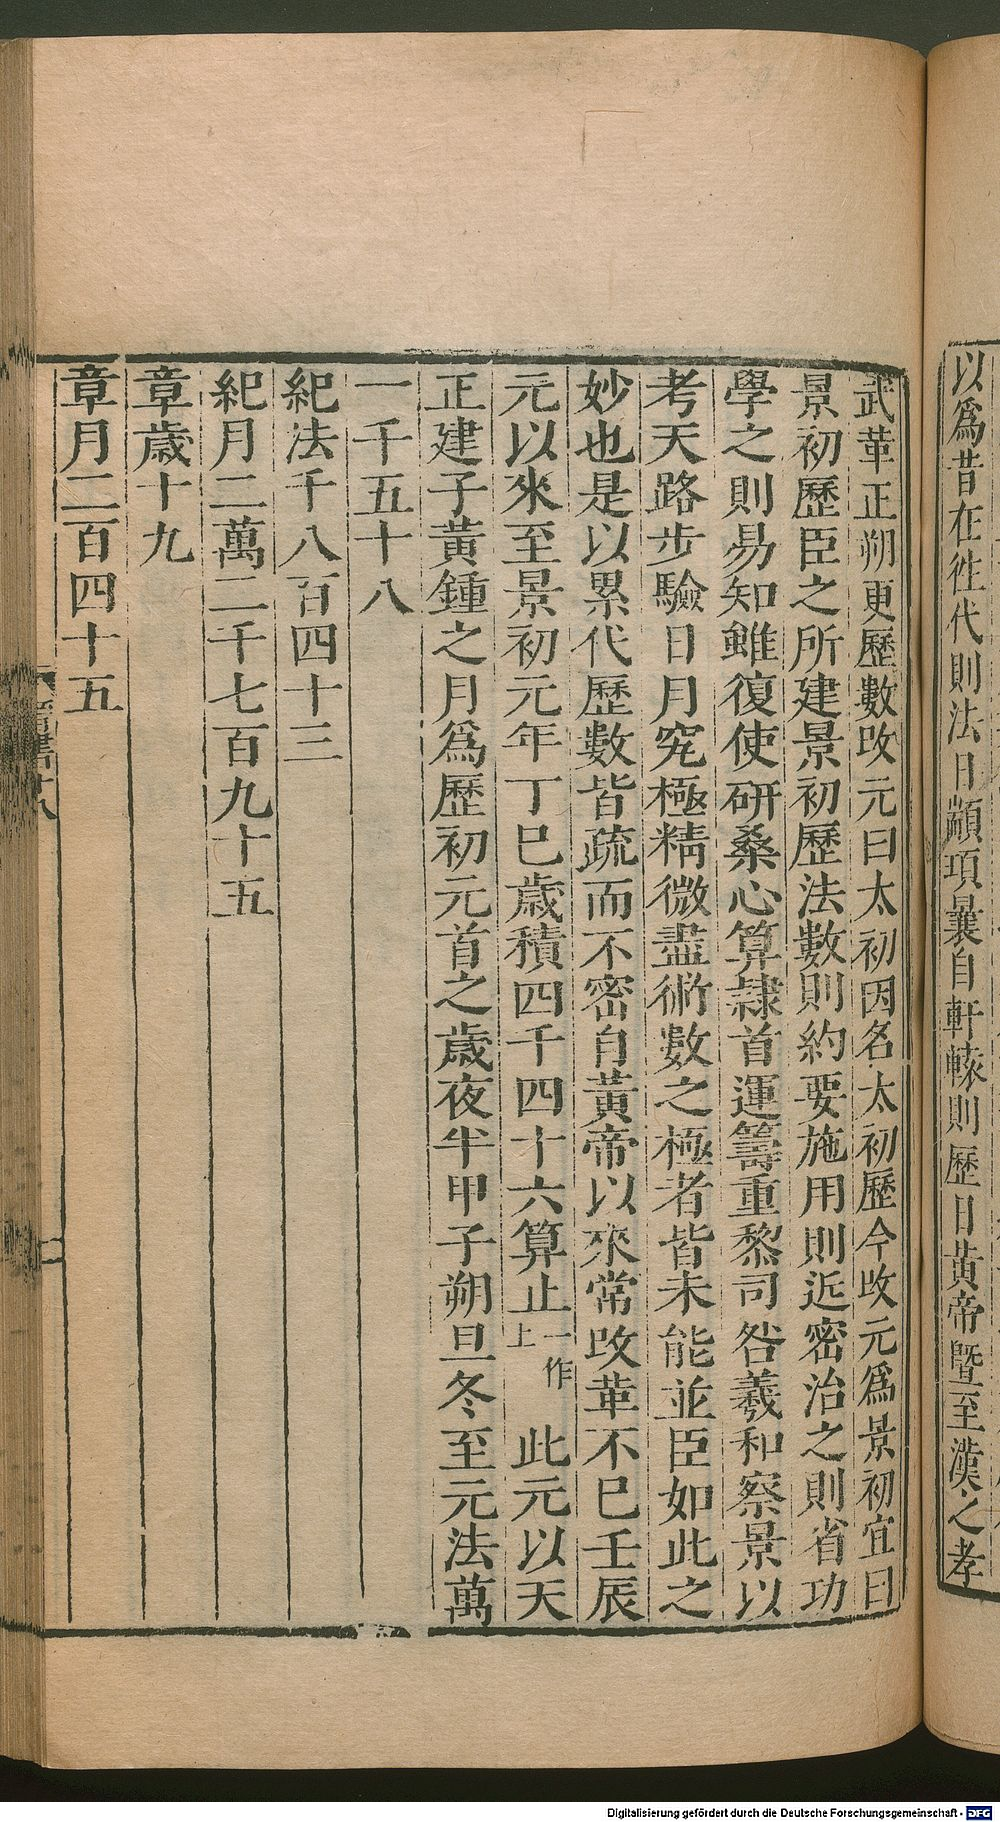 以爲昔在徃代則法日顓項曩自軒轅則歷日黄帝曁至漢之孝
武革正朔更歷數改元曰太初因名太初歷今改元爲景初宜曰
景初歷臣之所建景初歷法數則約要施用則近密治之則省功
學之則易知雖復使研桑心算隷首運籌重黎司晷羲和察景以
考天路步驗日月究極精微盡術數之極者皆未能並臣如此之
妙也是以累代歷數皆疏而不密自黄帝以來常改革不已壬辰
元以來至景初元年丁巳歳積四千四十六算止一作上此元以天
正建子黄鍾之月爲歷初元首之歳夜半甲子朔旦冬至元法萬
一千五十八
紀法千八百四十三
紀月二萬二千七百九十五
章歳十九
章月二百四十五
Digitalisierung gefördert durch die Deutsche Forschungsgemeinschaft - DFG